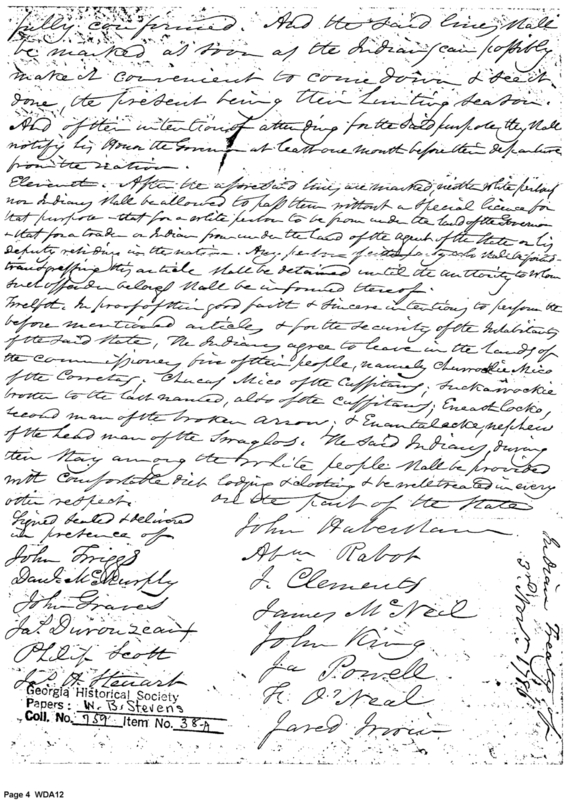 fully confirmed. And the said lines shall
be marked as soon as the Indians can possibly
make it convenient to come down & see it
done, the present being their hunting season.
And of their intention of attending for the said purpose they shall
notify his Honor the Governor at least one month before their departure
from the nation
Eleventh. After the aforesaid lines are marked, neither white persons
nor Indians shall be allowed to pass them without a special licence for
that purpose - that for a white person to be from under the hand of the Governor
& that for a trader or Indian from under the hand of the agent of the State or his
deputy residing in the nation. Any person of either party who shall be found
transgressing this article shall be detained until the authority to whom
such offender belongs shall be informed thereof.
Twelfth. In proof of their good faith & sincere intentions to perform the
before mentioned articles & for the security of the Inhabitants
of the said State, The Indians agree to leave in the hands of
the commissioners five of their people, namely Mico
of the Cowetas; Chucas Mico of the Cussitaws; Suckawockie
brother to the last named, also of the Cussitaws; Eneathlocko,
second man of the broken arrow; & nephew
of the head man of the Swaglos. The said Indians, during
their stay among the white people shall be provided
with comfortable diet lodging & clothing & be well treated in every
other respect. On the part of the State
Signed sealed & delivered
in presence of
John Habersham
John Triggs
Abm Rabot
Danl McMurphy
J. Clements
John Graves
James McNeil
Jas. Durouzeaux
John King
Philip Scott
Ja Powell
Jas. A. Steuart
F. O'Neal
Jared Irwin
Georgia Historical Society
Papers: W. B. Stevens
Coll. No. 759 Item No. 38-A
Indian Treaty of
3rd Novr. 1786
Page 4 WDA12